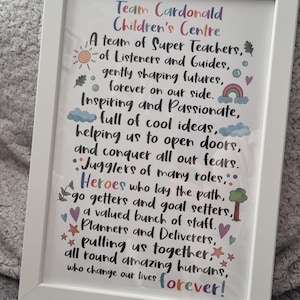 Team Cardonald
Children's Centre
A team of Super Teachers,
of Listeners and Guides,
gently shaping futures,
forever on our side.
Inspiring and Passionate,
full of cool ideas,
helping us to open doors,
and conquer all our fears.
Jugglers of many roles,
Heroes who lay the path,
go getters and goal setters,
a valued bunch of staff.
Planners and Deliverers,
pulling us together,
all round amazing humans,
who change our lives forever!